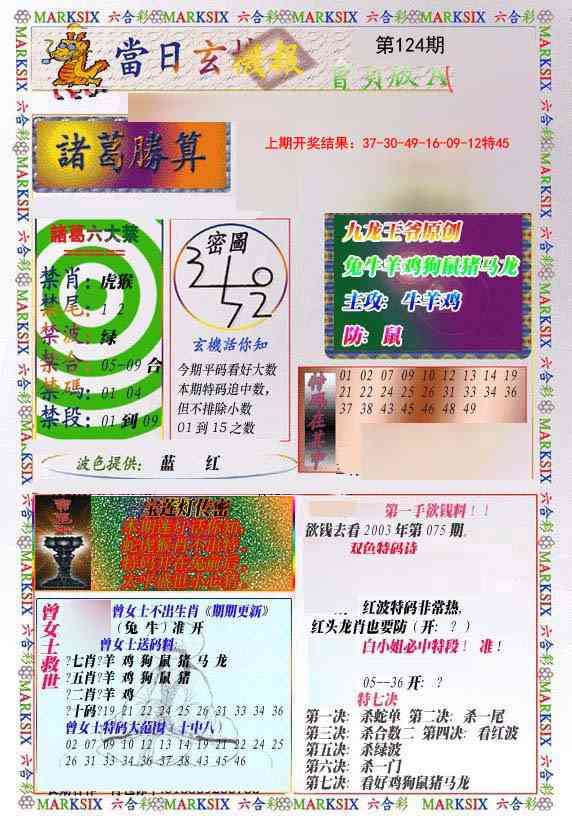 MARKSIX 六合彩 MARKSIX 六合彩 MARKSIX 六合彩 MARKSIX 六合彩 MARKSIX
當日玄機報
第124期
諸葛勝算
上期开奖结果：37-30-49-16-09-12特45
諸葛六大禁
禁肖：虎猴
禁尾：1 2
禁波：绿
禁合：05-09 合
禁碼：01 04
禁段：01 到 09
密圖
玄機話你知
今期平码看好大数
本期特码追中数，
但不排除小数
01 到 15 之数
九龙王爷原创
兔牛羊鸡狗鼠猪马龙
主攻：牛羊鸡
防：鼠
01 02 07 09 10 12 13 14 19
21 22 24 25 26 31 33 34 36
37 38 43 45 46 48 49
波色提供： 蓝 红
宝莲灯传密
第一手欲钱料！！
欲钱去看 2003 年第 075 期。
双色特码诗
红波特码非常热，
红头龙肖也要防（开：？）
白小姐必中特段！ 准！
05--36 开：？
特七决
第一决：杀蛇单 第二决：杀一尾
第三决：杀合数二 第四决：看红波
第五决：杀绿波
第六决：杀一门
第七决：看好鸡狗鼠猪马龙
曾女士救世
曾女士不出生肖《期期更新》
（兔 牛）准 开
曾女士送码料：
?七肖?羊 鸡 狗 鼠 猪 马 龙
?五肖?羊 鸡 狗 鼠 猪
?二肖?羊 鸡
?十码?19 21 22 24 25 26 31 33 34 36
曾女士特码大范围（十中八）
02 07 09 10 12 13 19 21 22 24 25
26 31 33 34 36 37 38 43 45 46
MARKSIX 六合彩 MARKSIX 六合彩 MARKSIX 六合彩 MARKSIX 六合彩 MARKSIX